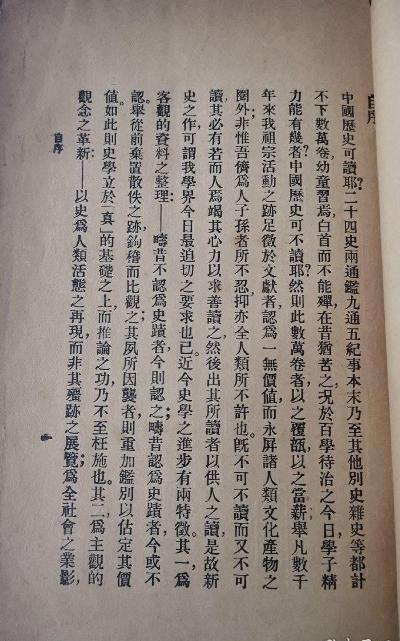 自序
中國歷史可讀耶?二十四史兩通鑑九通五紀事本末乃至其他別史雜史等都計
不下數萬卷,幼童習焉,白首而不能殫,在昔猶苦之,况於百學待治之今日,學子精
力能有幾者?中國歷史可不讀耶?然則此數萬卷者以之覆瓿,以之當薪,舉凡數千
年來我祖宗活動之跡足徵於文獻者,認爲一無價值,而永屏諸人類文化產物之
圈外;非惟吾儕爲人子孫者所不忍,抑亦全人類所不許也。旣不可不讀而又不可
讀,其必有若而人焉竭其心力以求善讀之,然後出其所讀者以供人之讀,是故新
史之作可謂我學界今日最迫切之要求也已。近今史學之進步有兩特徵。其一,爲
客觀的資料之整理:——疇昔不認爲史蹟者,今則認之;疇昔認爲史蹟者,今或不
認。舉從前棄置散佚之跡,鉤稽而比觀之;其夙所因襲者則重加鑑別以估定其價
値。如此則史學立於「眞」的基礎之上,而推論之功,乃不至枉施也。其二,爲主觀的
觀念之革新:——以史爲人類活態之再現,而非其殭跡之展覽;爲全社會之業影,
自序